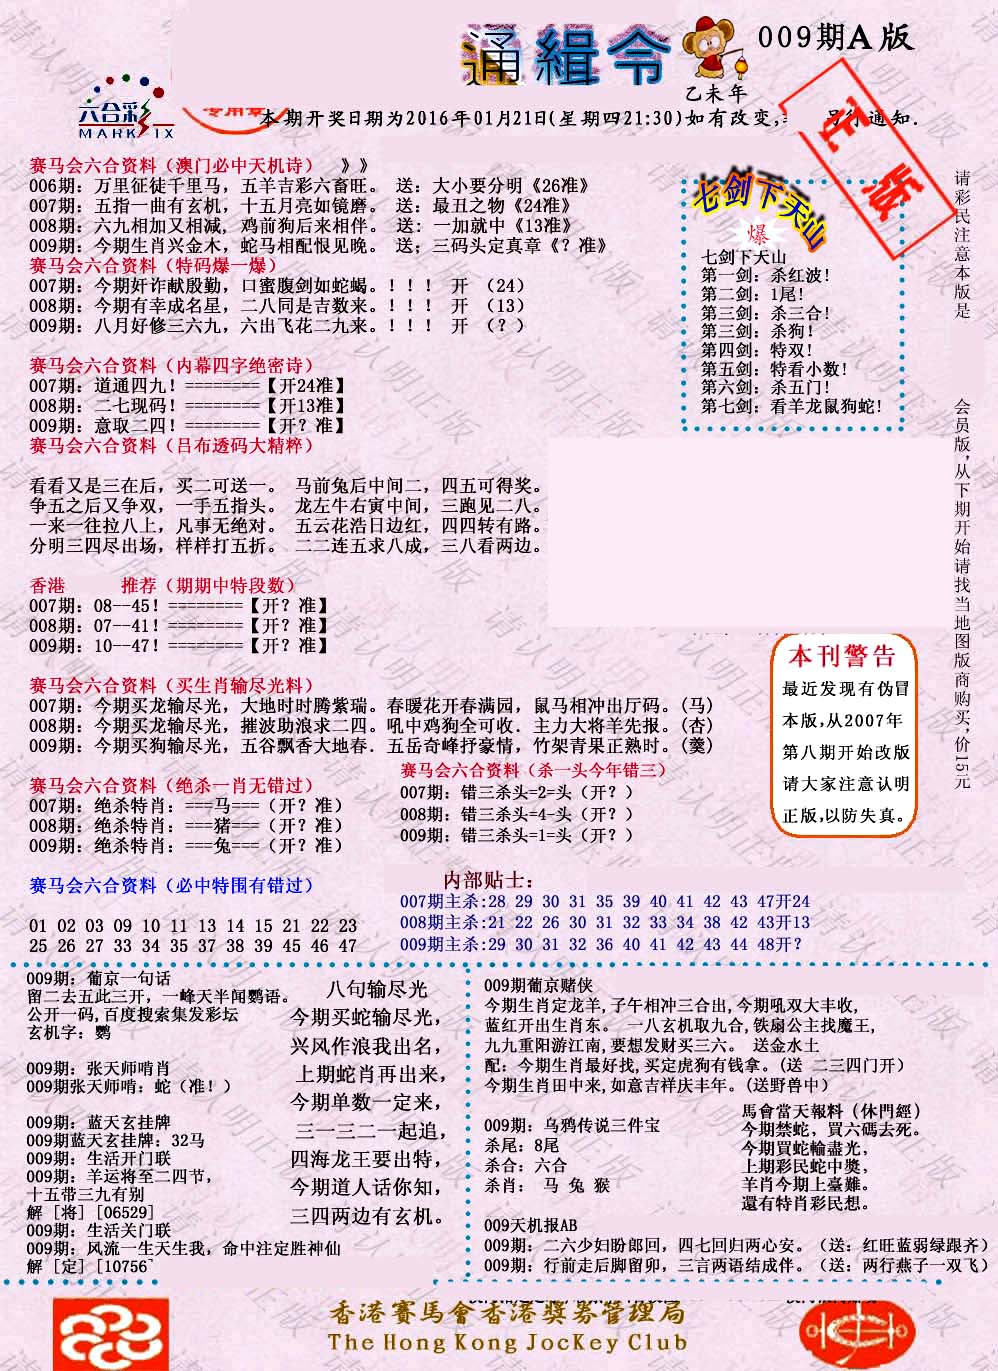 通緝令
009期A版
乙未年
六合彩
MARK SIX
专用章
正版
本期开奖日期为2016年01月21日(星期四21:30)如有改变,另行通知.
赛马会六合资料（澳门必中天机诗） 》》
006期：万里征徒千里马，五羊吉彩六畜旺。 送：大小要分明《26准》
007期：五指一曲有玄机，十五月亮如镜磨。 送：最丑之物《24准》
008期：六九相加又相减, 鸡前狗后来相伴。 送: 一加就中《13准》
009期：今期生肖兴金木，蛇马相配恨见晚。 送；三码头定真章《？准》
赛马会六合资料（特码爆一爆）
007期：今期奸诈献殷勤，口蜜腹剑如蛇蝎。！！！ 开 （24）
008期：今期有幸成名星，二八同是吉数来。！！！ 开 （13）
009期：八月好修三六九，六出飞花二九来。！！！ 开 （？）
赛马会六合资料（内幕四字绝密诗）
007期：道通四九！========【开24准】
008期：二七现码！========【开13准】
009期：意取二四！========【开？准】
赛马会六合资料（吕布透码大精粹）
看看又是三在后，买二可送一。 马前兔后中间二，四五可得奖。
争五之后又争双，一手五指头。 龙左牛右寅中间，三跑见二八。
一来一往拉八上，凡事无绝对。 五云花浩日边红，四四转有路。
分明三四尽出场，样样打五折。 二二连五求八成，三八看两边。
七剑下天山
爆
七剑下天山
第一剑：杀红波!
第二剑：1尾!
第三剑：杀三合!
第三剑：杀狗!
第四剑：特双!
第五剑：特看小数!
第六剑：杀五门!
第七剑：看羊龙鼠狗蛇!
请彩民注意本版是
会员版,从下期开始请找当地图版商购买,价15元
香港 推荐（期期中特段数）
007期：08--45！========【开？准】
008期：07--41！========【开？准】
009期：10--47！========【开？准】
赛马会六合资料（买生肖输尽光料）
007期：今期买龙输尽光，大地时时腾紫瑞。春暖花开春满园，鼠马相冲出厅码。(马)
008期：今期买龙输尽光，摧波助浪求二四。吼中鸡狗全可收．主力大将羊先报。(杏)
009期：今期买狗输尽光，五谷飘香大地春．五岳奇峰抒豪情，竹架青果正熟时。(羹)
本刊警告
最近发现有伪冒
本版,从2007年
第八期开始改版
请大家注意认明
正版,以防失真。
赛马会六合资料（绝杀一肖无错过）
007期：绝杀特肖：===马===（开？准）
008期：绝杀特肖：===猪===（开？准）
009期：绝杀特肖：===兔===（开？准）
赛马会六合资料（杀一头今年错三）
007期：错三杀头=2=头（开？）
008期：错三杀头=4-头（开？）
009期：错三杀头=1=头（开？）
赛马会六合资料（必中特围有错过）
01 02 03 09 10 11 13 14 15 21 22 23
25 26 27 33 34 35 37 38 39 45 46 47
内部贴士：
007期主杀:28 29 30 31 35 39 40 41 42 43 47开24
008期主杀:21 22 26 30 31 32 33 34 38 42 43开13
009期主杀:29 30 31 32 36 40 41 42 43 44 48开?
009期：葡京一句话
留二去五此三开，一峰天半闻鹦语。
公开一码,百度搜索集发彩坛
玄机字：鹦
009期：张天师啃肖
009期张天师啃：蛇（准！）
009期：蓝天玄挂牌
009期蓝天玄挂牌：32马
009期：生活开门联
009期：羊运将至二四节，
十五带三九有别
解 [将] [06529]
009期：生活关门联
009期：风流一生天生我，命中注定胜神仙
解 [定] [10756]
八句输尽光
今期买蛇输尽光,
兴风作浪我出名,
上期蛇肖再出来,
今期单数一定来,
三一三二一起追,
四海龙王要出特,
今期道人话你知,
三四两边有玄机。
009期葡京赌侠
今期生肖定龙羊,子午相冲三合出,今期吼双大丰收,
蓝红开出生肖东。 一八玄机取九合,铁扇公主找魔王,
九九重阳游江南,要想发财买三六。 送金水土
配：今期生肖最好找,买定虎狗有钱拿。(送 二三四门开)
今期生肖田中来,如意吉祥庆丰年。(送野兽中)
009期：乌鸦传说三件宝
杀尾：8尾
杀合：六合
杀肖： 马 兔 猴
馬會當天報料（休門經）
今期禁蛇，買六碼去死。
今期買蛇輸盡光，
上期彩民蛇中獎，
羊肖今期上臺難。
還有特肖彩民想。
009天机报AB
009期：二六少妇盼郎回，四七回归两心安。（送：红旺蓝弱绿跟齐）
009期：行前走后脚留卯，三言两语结成伴。（送：两行燕子一双飞）
香港賽馬會香港獎券管理局
The Hong Kong JocKey Club